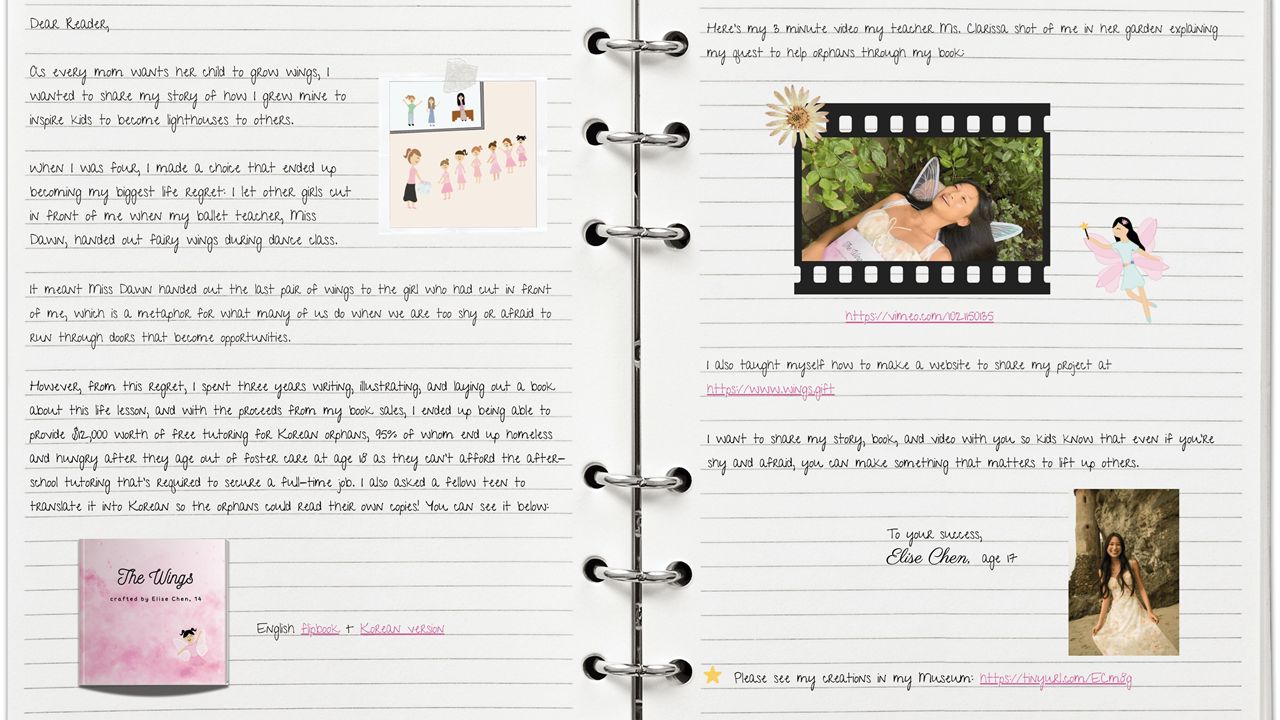 Dear Reader,
As every mom wants her child to grow wings, I
wanted to share my story of how I grew mine to
inspire kids to become lighthouses to others.
When I was four, I made a choice that ended up
becoming my biggest life regret: I let other girls cut
in front of me when my ballet teacher, Miss
Dawn, handed out fairy wings during dance class.
It meant Miss Dawn handed out the last pair of wings to the girl who had cut in front
of me, which is a metaphor for what many of us do when we are too shy or afraid to
run through doors that become opportunities.
However, from this regret, I spent three years writing, illustrating, and laying out a book
about this life lesson, and with the proceeds from my book sales, I ended up being able to
provide $12,000 worth of free tutoring for Korean orphans, 95% of whom end up homeless
and hungry after they age out of foster care at age 18 as they can't afford the after-
school tutoring that's required to secure a full-time job. I also asked a fellow teen to
translate it into Korean so the orphans could read their own copies! You can see it below:
The Wings
crafted by Elise Chen, 14
English flipbook + Korean version
Here's my 3 minute video my teacher Ms. Clarissa shot of me in her garden explaining
my quest to help orphans through my book:
The Wings
https://vimeo.com/1021150135
I also taught myself how to make a website to share my project at
https://www.wings.gift
I want to share my story, book, and video with you so kids know that even if you're
shy and afraid, you can make something that matters to lift up others.
To your success,
Elise Chen, age 17
Please see my creations in my Museum: https://tinyurl.com/ECm8g